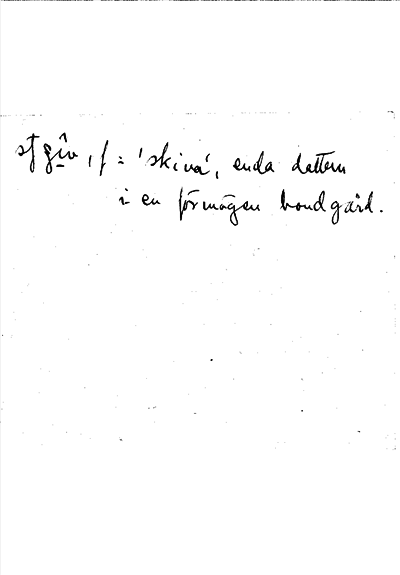 f = 'skiva', enda dattern
i en förmögen bondgård.